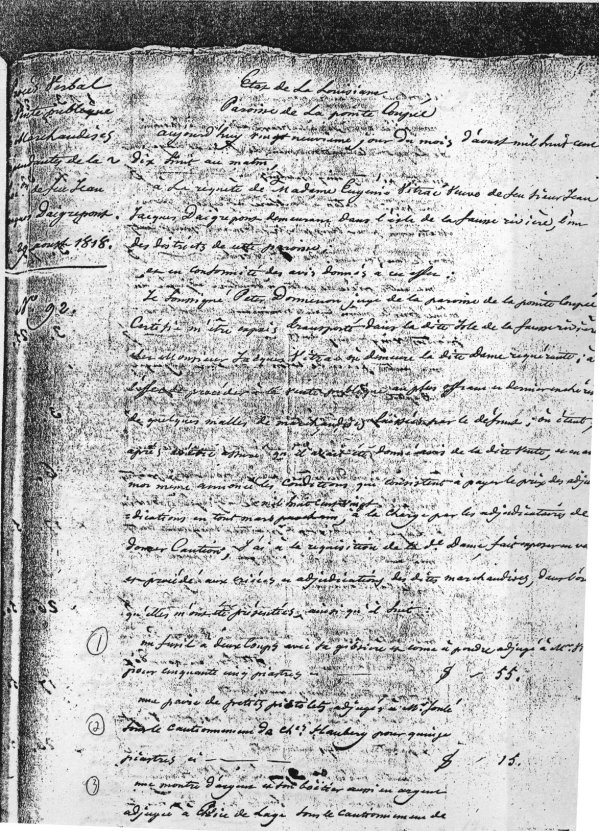 Procès Verbal
Vente publique
Marchandises
de la
de feu Jean
Jacques Daigrepont.
29 aoust 1818.
N° 92.
Etat de La Louisiane
Paroisse de La pointe Coupée
aujourd'huy vingt neuvieme jour du mois d'aoust mil huit cent
dix huit au matin,
à La requête de Madame Eugenie Vitrac Veuve de feu sieur Jean
Jacques Daigrepont demeurant dans l'isle de la fausse rivière, l'un
des districts de cette paroisse,
et en conformité des avis donnés à cet effet;
Je soussigné Peter Dormenon, juge de la paroisse de la pointe Coupée
Certifie m'être exprès transporté dans la dite Isle de la fausse rivière
chez Monsieur Jacques Vitrac où demeure la dite Dame requérante, à
l'effet de procéder à la vente publique au plus offrant et dernier enchérisseur
de quelques malles de marchandises laissées par le défunt; où étant,
après m'être assuré qu'il avait été donné avis de la dite vente, et en avoir
moi même annoncé les conditions qui consistent à payer le prix des adju
mil huit cent vingt
dications en tout mars prochain, à la charge par les adjudicataires de
donner Caution, J'ai à la requisition de la de. Dame fait exposer en vente
et procédé aux criées et adjudications des dites marchandises, dans l'ordre
qu'elles m'ont été présentées, ainsi qu'il suit:
1 un fusil à deux coups avec sa gibecière et corne à poudre adjugé à Mr.
pour cinquante cinq piastres ci $ 55.
une paire de petits pistolets adjugés à Mr.
2 sous le cautionnement de Chs. pour quinze
piastres ci $ 15.
3 une montre d'argent et son boitier aussi en argent
adjugée à sous le cautionnement de